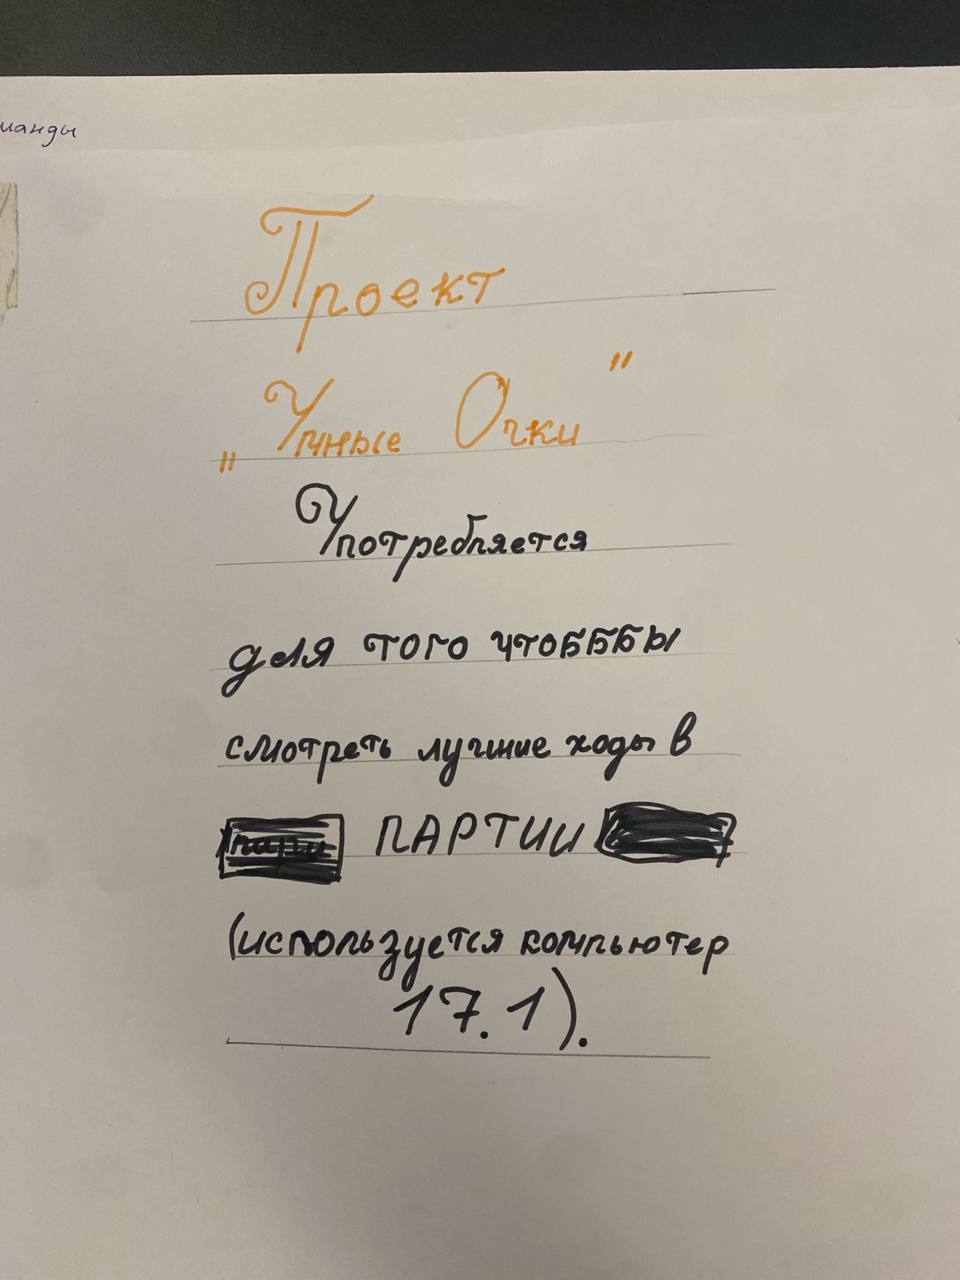 Проект
„Умные Очки"
Употребляется
для того чтобББбы
смотреть лучшие ходы в
ПАРТИИ
(используется компьютер
17.1).